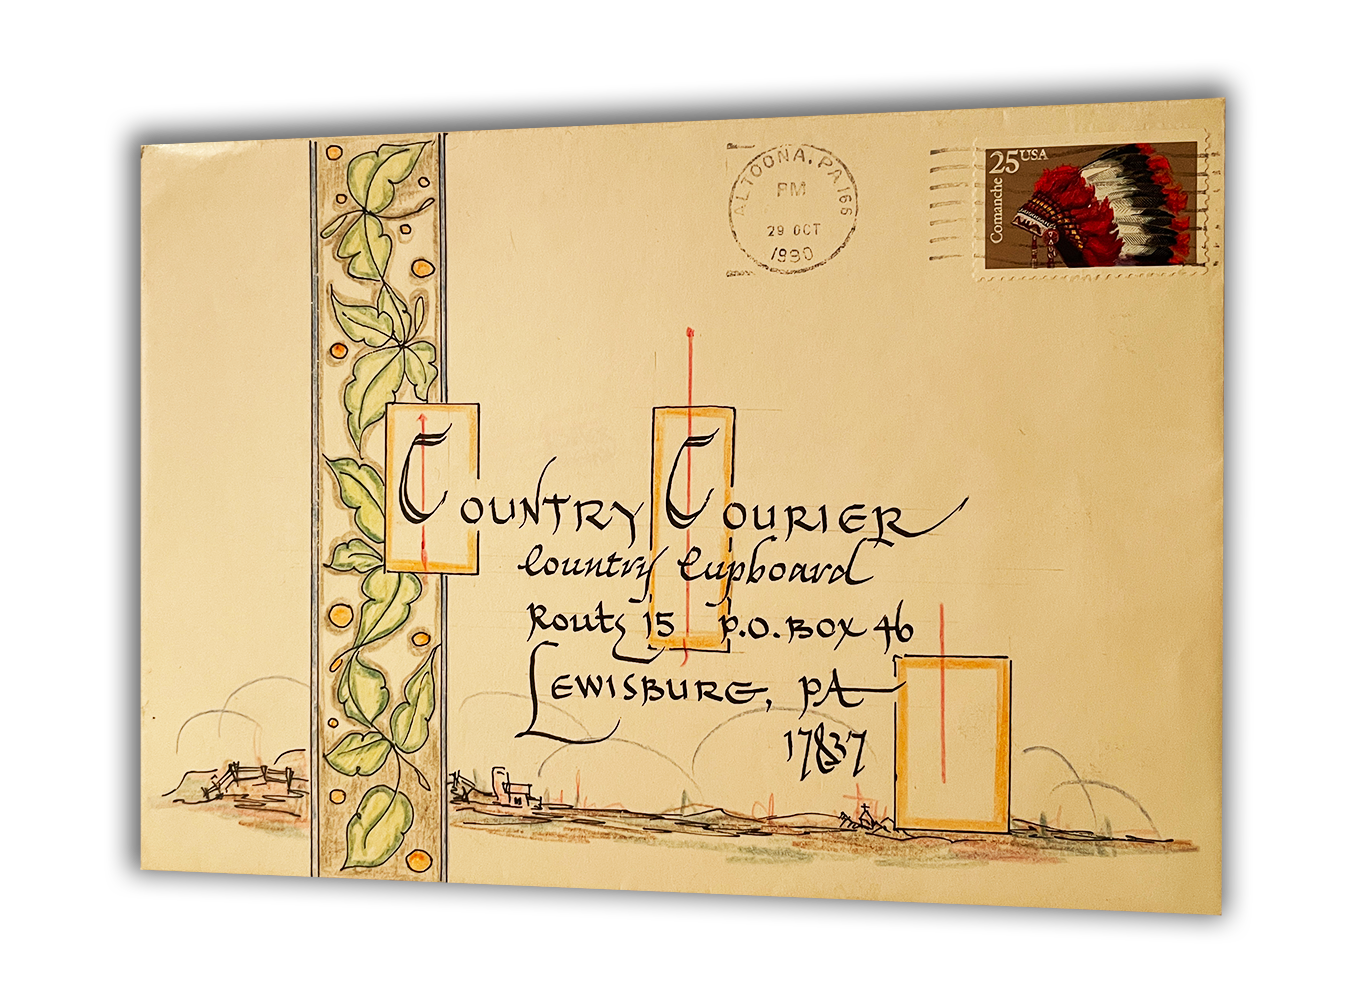 ALTOONA, PA 166
PM
29 OCT
1990
25 USA
Comanche
COUNTRY COURIER
Country Cupboard
Route 15 P.O. BOX 46
LEWISBURG, PA
17837